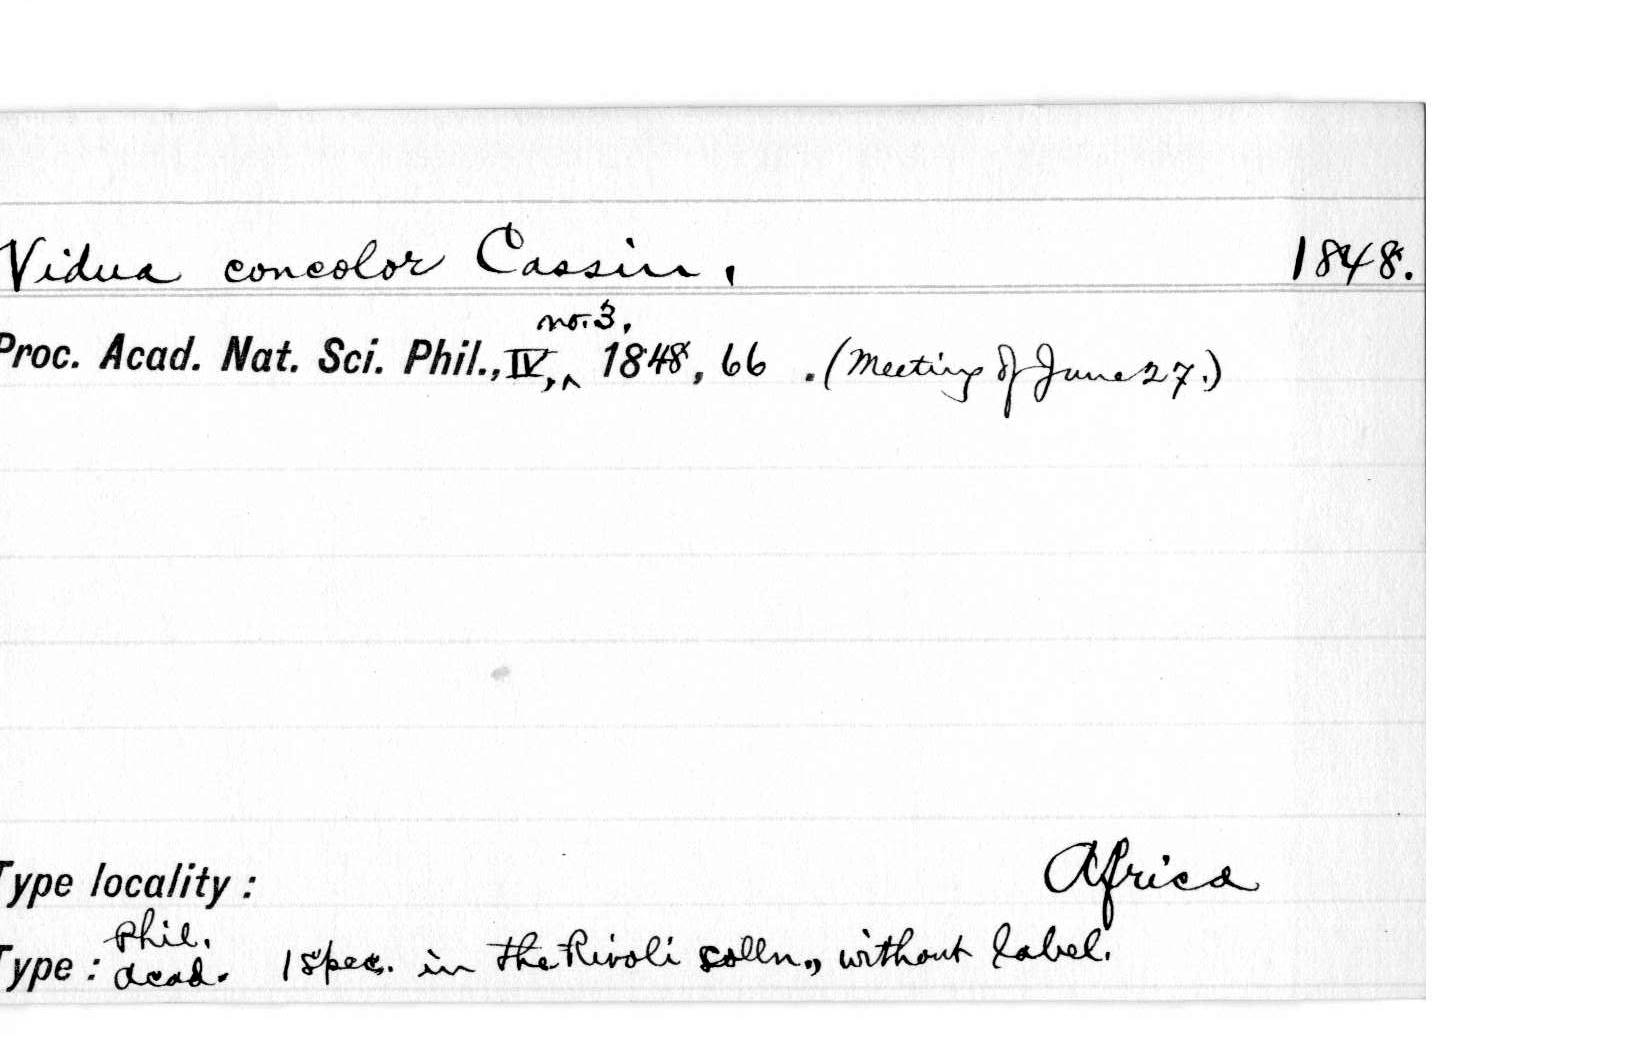 Vidua concolor Cassin, 1848.
no. 3,
Proc. Acad. Nat. Sci. Phil., IV, ^ 1848, 66 . (Meeting of June 27.)
Type locality : Africa
Phil.
Type : Acad. 1 spec. in the Rivoli colln., without label.